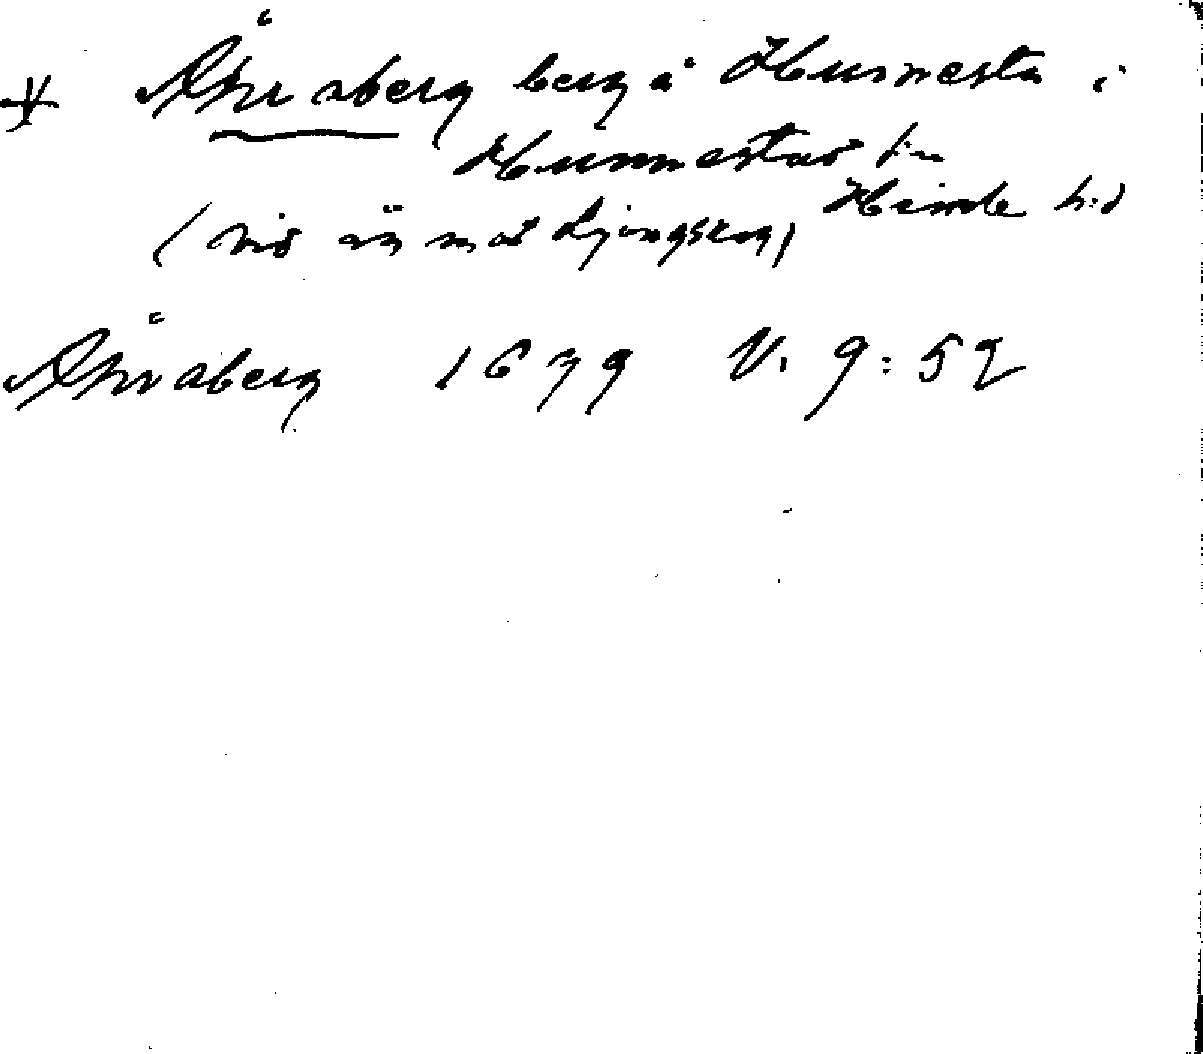 * Åhraberg berg å Hunnesta i
Hunnestad sn
Himle h:d
(vid äg mot Ljungskog)
Åhraberg 1679 V. 9:52